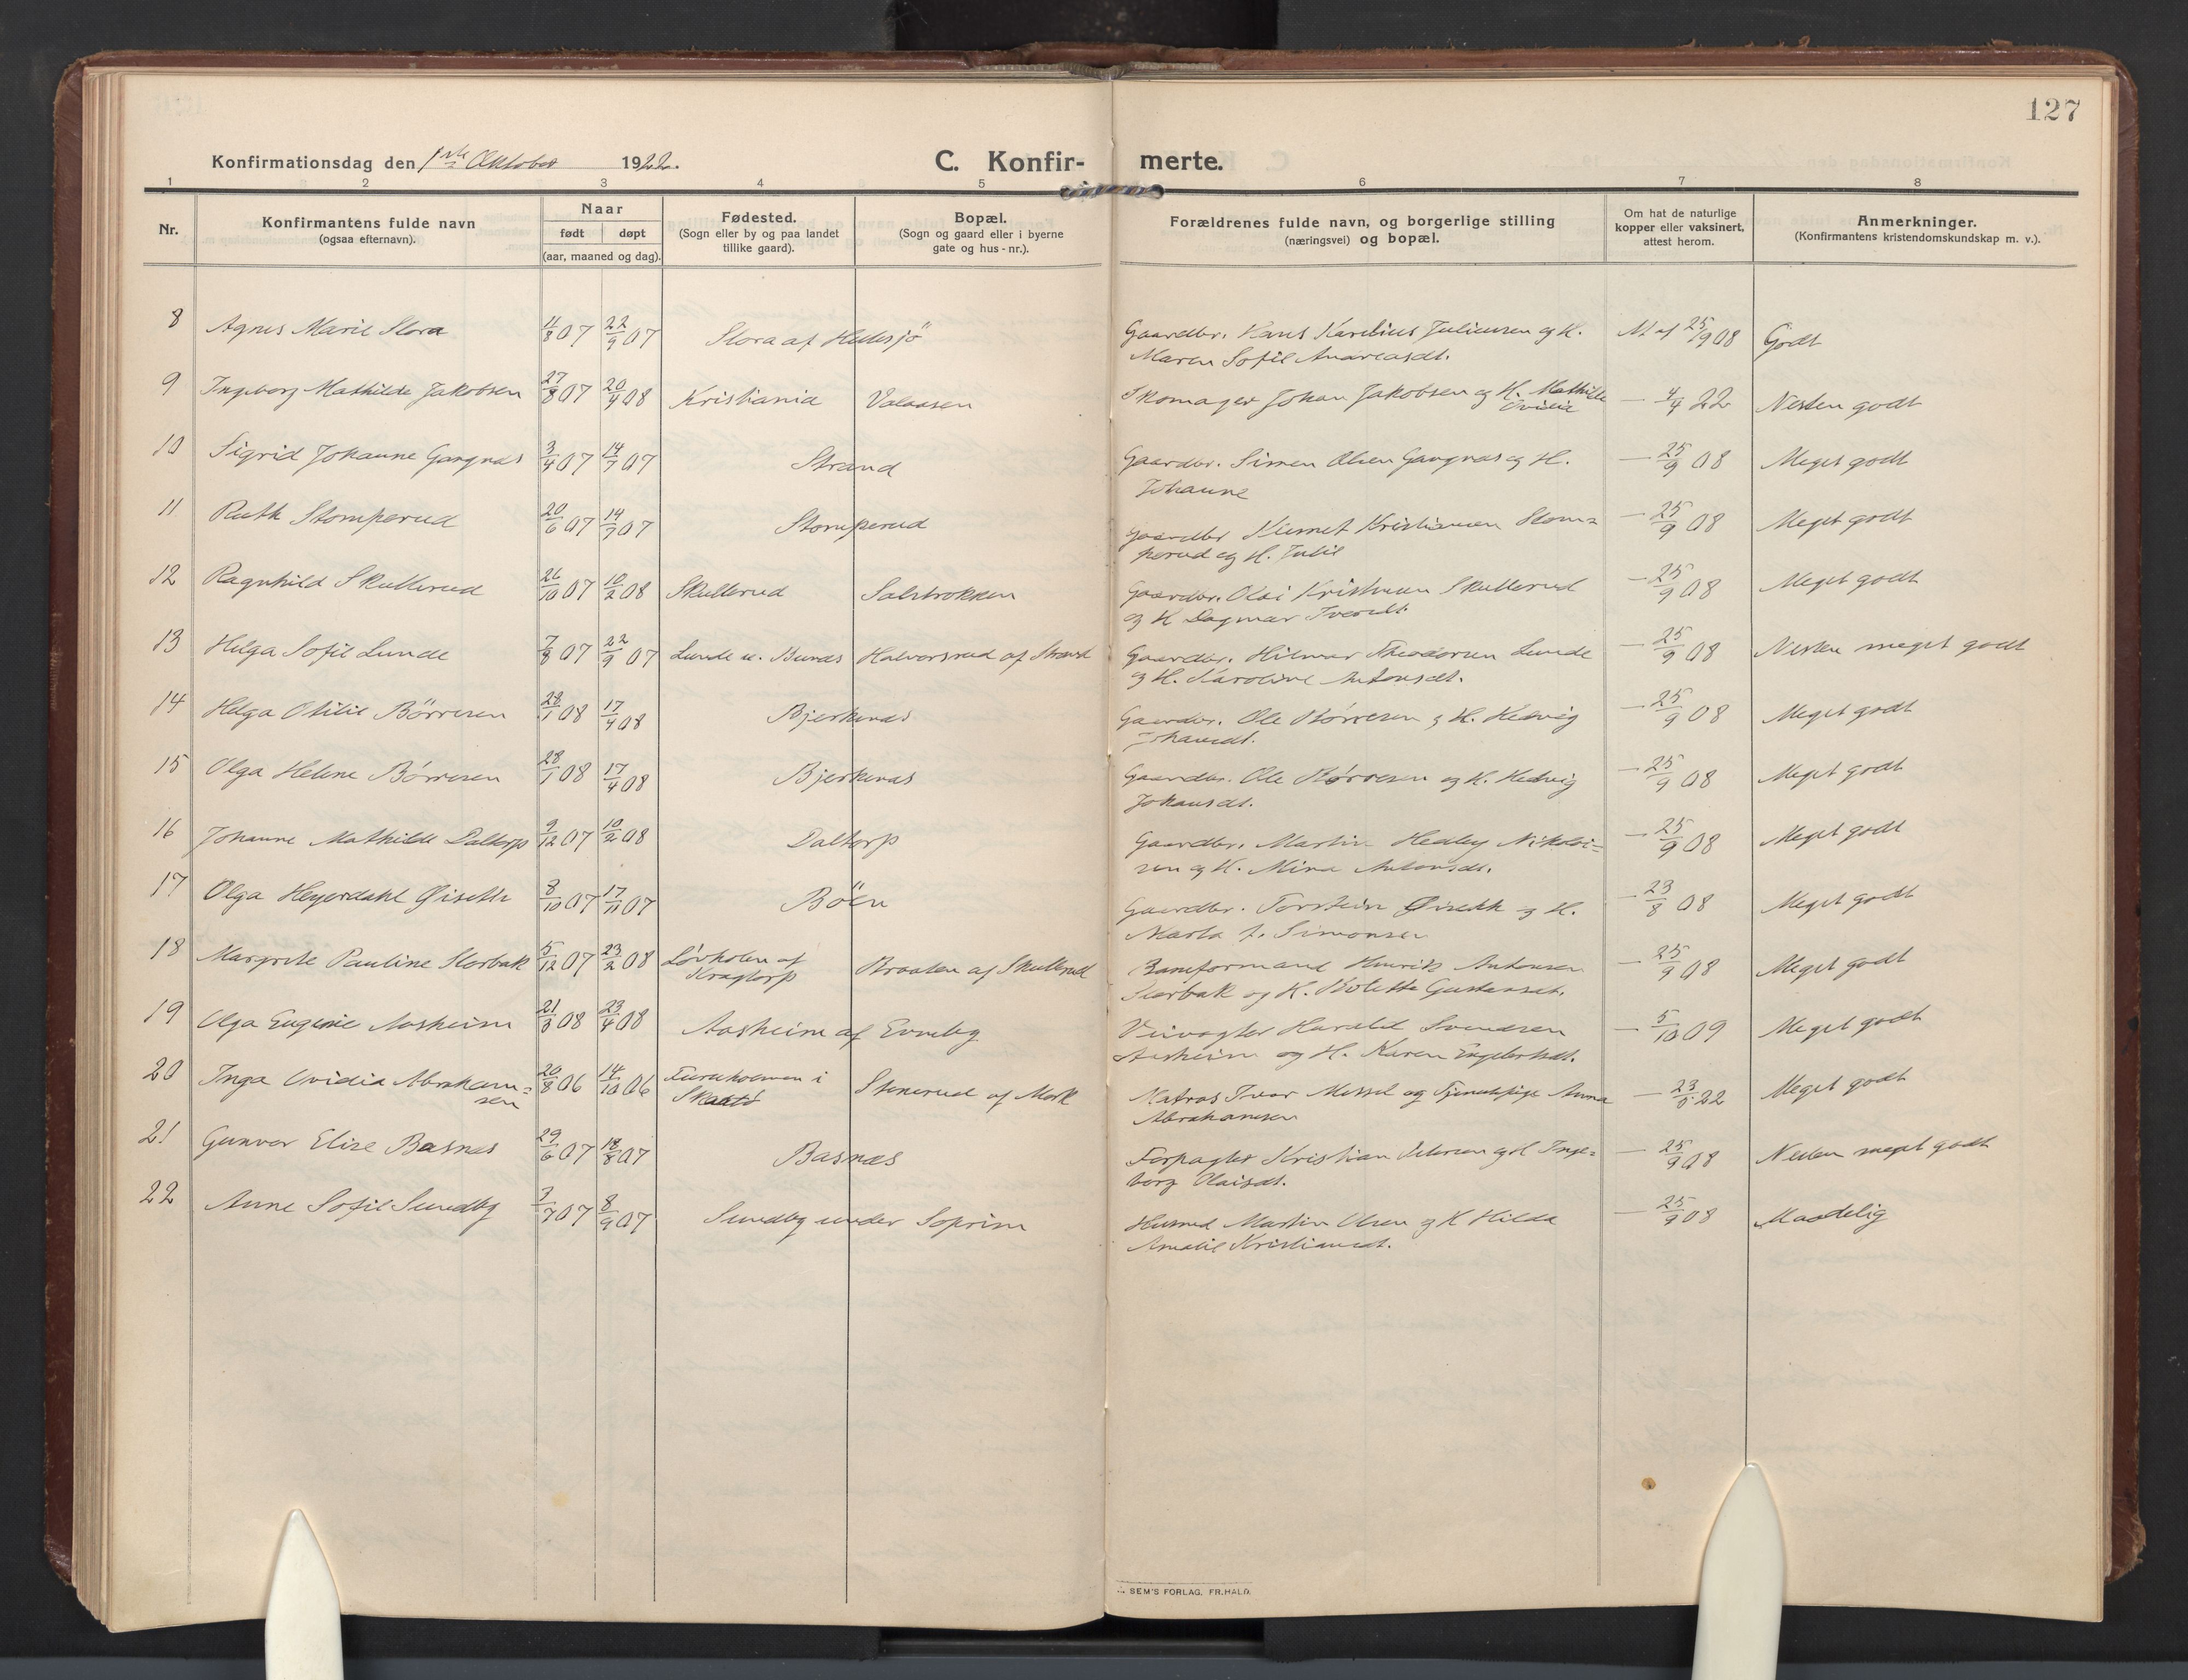 127
Konfirmationsdag den 1ste Oktober 1922. C. Konfir- merte.
1 2 3 4 5 6 7 8
Nr. Konfirmantens fulde navn (ogsaa efternavn). Naar født døpt (aar, maaned og dag). Fødested. (Sogn eller by og paa landet tillike gaard). Bopæl. (Sogn og gaard eller i byerne gate og hus-nr.). Forældrenes fulde navn, og borgerlige stilling (næringsvei) og bopæl. Om hat de naturlige kopper eller vaksinert, attest herom. Anmerkninger. (Konfirmantens kristendomskundskap m. v.).
8 Agnes Marie Slora 11/8 07 22/9 07 Slora af Hellesjö Gaardbr. Hans Karelius Juliussen og H. M af 25/9 08 Godt
Maren Sofie Andreasdt.
9 Ingeborg Mathilde Jakobsen 27/8 07 20/4 08 Kristiania Valaasen Skomager Johan Jakobsen og H. Mathilde — 4/4 22 Nesten godt
Ovidia
10 Sigrid Johanne Gangnæs 3/4 07 14/7 07 Strand Gaardbr. Simen Olsen Gangnæs og H. — 25/9 08 Meget godt
Johanne
11 Ruth Stomperud 20/6 07 14/7 07 Stomperud Gaardbr Kristiansen Stom= — 25/9 08 Meget godt
perud og H. Julie
12 Ragnhild Skullerud 26/10 07 10/2 08 Skullerud Gaardbr. Olai Skullerud — 25/9 08 Meget godt
og H Dagmar Iversdt.
13 Helga Sofie Lunde 7/8 07 22/9 07 Lunde u. Bunæs Halvorsrud af Strand Gaardbr. Hilmar Theodorsen Lunde — 25/9 08 Nesten meget godt
og H. Karoline Antonsdt.
14 Helga Otilie Börresen 28/1 08 17/4 08 Bjerkenæs Gaardbr. Ole Börresen og H. Hedvig — 25/9 08 Meget godt
Johansdt.
15 Olga Helene Børresen 28/1 08 17/4 08 Bjerkenæs Gaardbr. Ole Børresen og H. Hedvig — 25/9 08 Meget godt
Johansdt.
16 Johanne Mathilde Daltorp 9/12 07 10/2 08 Daltorp Gaardbr. Martin Hedley Nikolai= — 25/9 08 Meget godt
sen og H. Mina Antonsdt.
17 Olga Heyerdahl Øiseth 8/10 07 17/11 07 Böen Gaardbr. Torstein og H. — 23/8 08 Meget godt
Marta f. Simonsen
18 Margrete Pauline Slorbak 5/12 07 23/2 08 Lövholen af Kragtorp Braaten af Skullerud Baneformand Henrik Antonsen — 25/9 08 Meget godt
Slorbak og H. Bolette Gustavsdt.
19 Olga Eugenie Aasheim 21/3 08 23/4 08 Aasheim af Evneby Veivogter Harald Svendsen — 5/10 09 Meget godt
Aasheim og H. Karen Engebretsdt.
20 Inga Ovidia Abraham= 20/8 06 14/10 06 Furuholmen i Stenerud af Mork Matros Ivar Messel og Tjenestepige Anna — 23/ 22 Meget godt
sen Skaatö Abrahamsen
21 Gunvor Elise Basnæs 29/6 07 18/8 07 Basnæs Forpagter Kristian Petersen og H Inge= — 25/9 08 Nesten meget godt
borg Olaisdt.
22 Anne Sofie Sundby 7/7 07 8/9 07 Sundby under Soprim Husmd Martin Olsen og H Hilda — 25/9 08 Maadelig
Amalie Kristiansdt.
SEM'S FORLAG. FR.HALD.